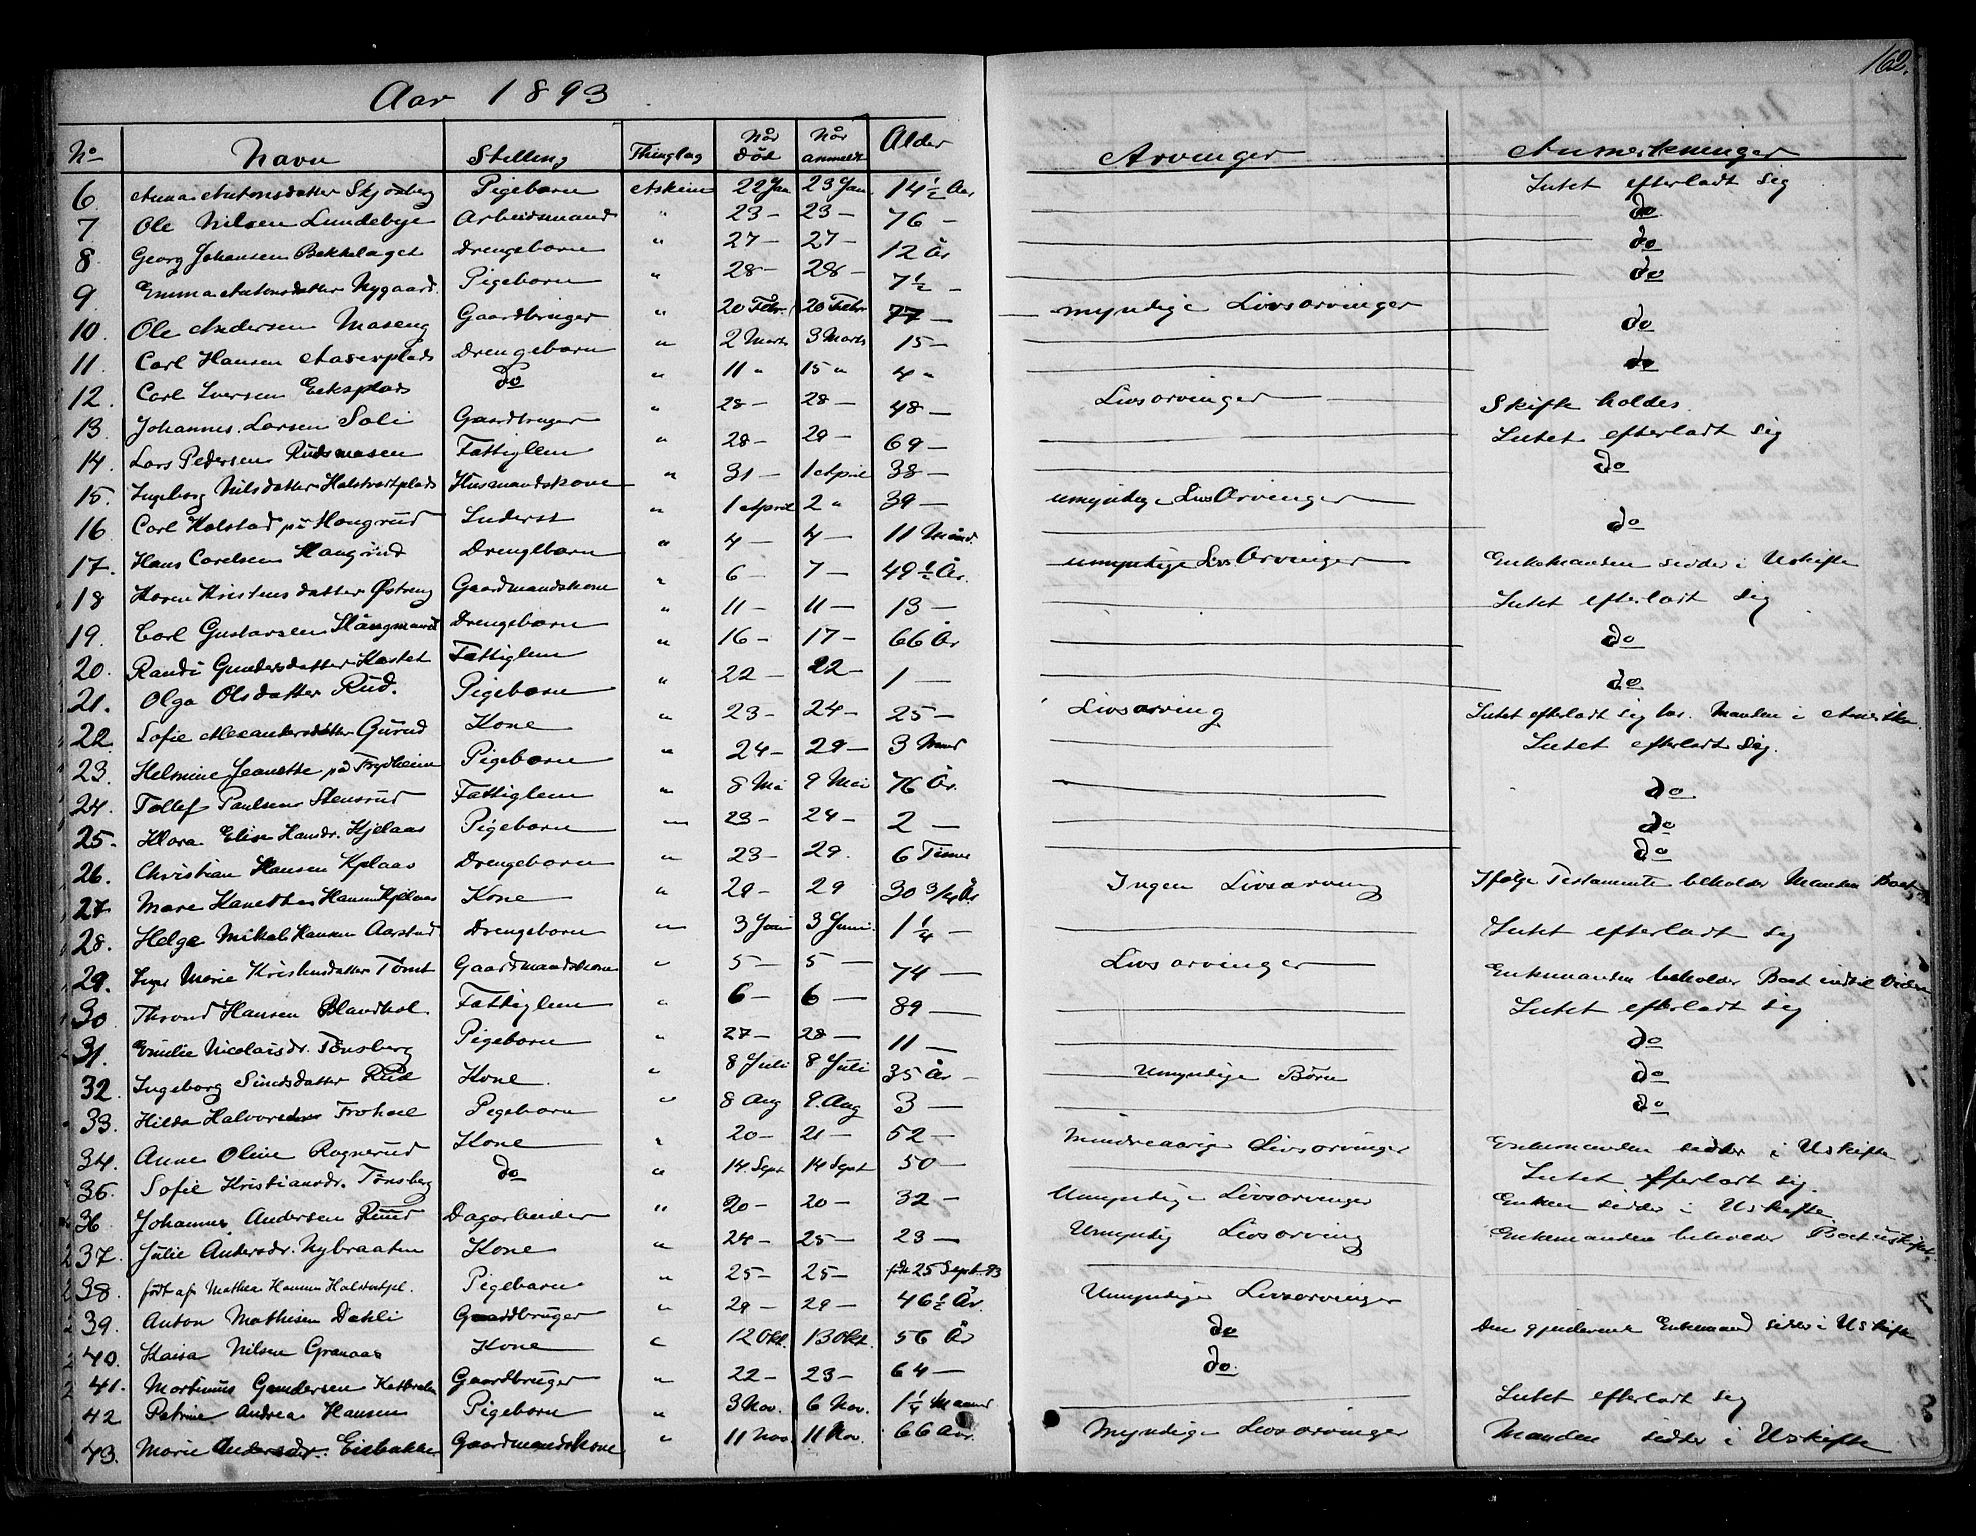 162.
Aar 1893
No Navn Stilling Thinglag Når død Når anmeldt Alder Arvinger Anmerkninger
6. Anna Antonsdatter Skjønberg Pigebarn Askim 22 Jan 23 Jan 14½ År Intet efterladt sig
7 Ole Nilsen Lundebye Arbeidsmand " 23 — 23 — 76 — do
8 Georg Johansen Bakkelaget Drengebarn " 27 — 27 — 12 År do
9 Emma Antonsdatter Nygaard Pigebarn " 28 — 28 — 7½ — do
10. Ole Andersen Maseng Gaardbruger " 20 Febr. 20 Febr 77 — myndige Livsarvinger
11. Carl Hansen Aaserplads Drengebarn " 2 Marts 3 Marts 15 — do
12. Carl Iversen Eeksplads do " 11 " 15 " 4 " do
13. Johannes Larsen Soli Gaardbruger " 28 — 28 — 48 — Livsarvinger Skifte holdes.
14. Lars Pedersen Rudsmosen Fattiglem " 28 — 29 — 69 — Intet efterladt sig
15. Ingeborg Nilsdatter Holstvetplads Husmandskone " 31 — 1 April 38 — do
16 Carl Kolstad på Haugrud Inderst " 1 April 2 " 39 — umyndige Livs Arvinger
17. Hans Carelsen Haugrud Drengebarn " 4 — 4 — 11 Månd. do
18 Karen Kristensdatter Østreng Gaardmandskone " 6 — 7 — 49½ År. umyndige Livs Arvinger Enkemanden sidder i Uskifte
19. Carl Gustavsen Drengebarn " 11 — 11 — 13 — Intet efterladt sig
20. Randi Gundersdatter Kastet Fattiglem " 16 — 17 — 66 År do
21. Olga Olsdatter Rud. Pigebarn " 22 — 22 — 1 — do
22. Sofie Alexandersdatter Gurud Kone " 23 — 24 — 25 — Livsarving Intet efterladt sig har Manden i Amerika
23. Helmine Jeanette på Frydheim Pigebarn " 24 — 29 — 3 Mand Intet efterladt sig.
24. Tollef Paulsen Stensrud Fattiglem " 8 Mai 9 Mai 76 År. do
25. Klara Elise Hansdr. Kjelaas Pigebarn " 23 — 24 — 2 — do
26. Christian Hansen Kjelaas Drengebarn " 23 — 29. 6 Timer do
27. Mare Hanette Kjelaas Kone " 29 — 29 30 3/4 År Ingen Livsarving Ifølge Testamente beholder Manden Boet
28. Helge Mikal Hansen Aarstad Drengebarn " 3 Juni 3 Juni. 1¼ — Intet efterladt sig
29. Inger Marie Kristensdatter Tømt Gaardmandskone " 5 — 5 — 74 — Livsarvinger Enkemanden beholder Boet indtil Videre
30 Thrond Hansen Blandhol. Fattiglem " 6 — 6 — 89 — Intet efterladt sig
31. Emilie Nicolaisdr. Tønsberg Pigebarn " 27 — 28 — 11 — do
32. Ingeborg Rud Kone. " 8 Juli 8 Juli 35 År — Umyndige Børn do
33. Hilda Halvorsdatter Frohol Pigebarn " 8 Aug 9. Aug 3 — do
34. Anne Oline Rognerud Kone " 20 — 21 — 52 — Mindreaarige Livsarvinger Enkemanden sidder i Uskifte
35. Sofie Kristiansdr. Tønsberg do " 14. Sept 14 Sept 50 — Intet efterladt sig.
36 Johannes Andersen Ruud Dagarbeider " 20 — 20 — 32 — Umyndige Livsarvinger Enken sidder i Uskifte
37. Julie Andersdr. Nybraaten Kone " 24 — 25 — 23 — Umyndig Livsarving Enkemanden beholder Boet uskiftet
38. født af Mathea Hansen Holstvetpl. Pigebarn " 25 — 25 — født 25 Sept. 93
39. Anton Mathisen Dahli Gaardbruger " 29 — 29 — 46½ År. Umyndige Livsarvinger
40. Kaisa Nilsen Granaas Kone " 12 Okt. 13 Okt. 56 År do Den gjenlevende Enkemand sidder i Uskifte
41. Mortinus Gundersen Gaardbruger " 22 — 23 — 64 — do.
42 Petrine Andrea Hansen Pigebarn " 3 Nov. 6 Nov. 1¼ Maaned Intet efterladt sig
43. Marie Andersdr. Eisbakke Gaardmandskone " 11 Nov. 11 Nov. 66 År. Myndige Livsarvinger Manden sidder i Uskifte